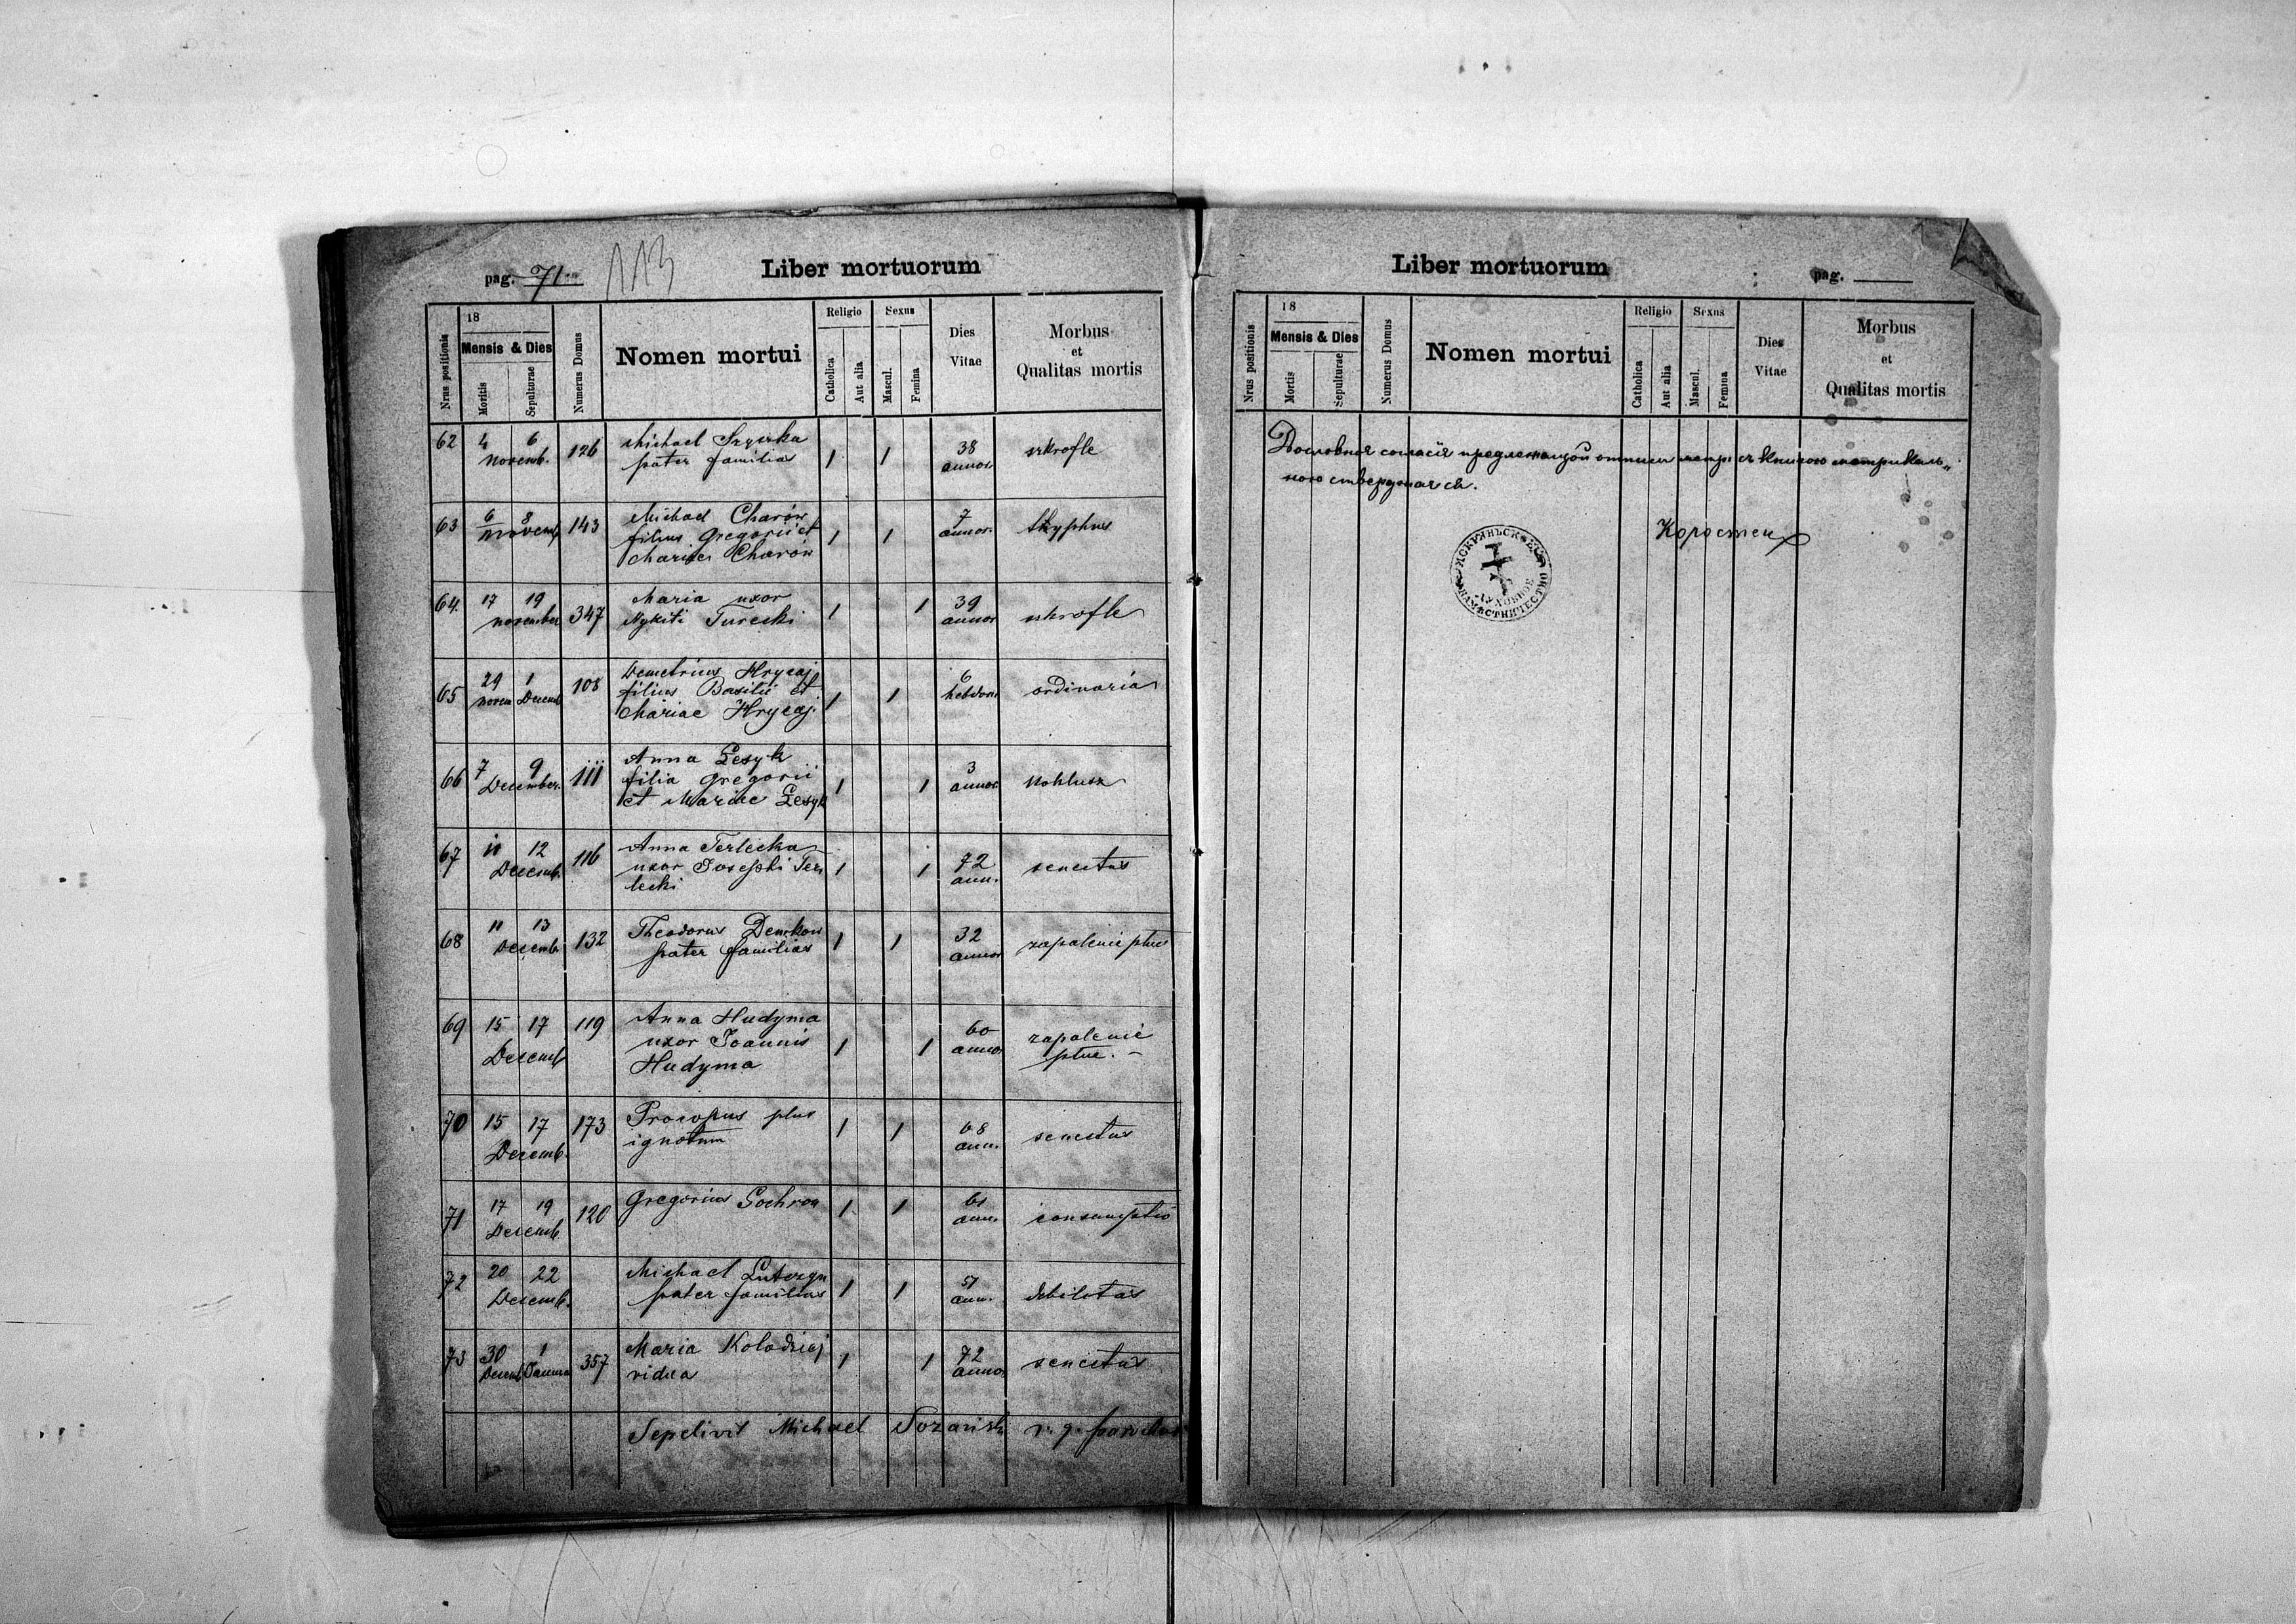 pag. 71 113 Liber mortuorum
Nrus positionis
18
Mensis & Dies
Mortis
Sepulturae
Numerus Domus
Nomen mortui
Religio
Catholica
Aut alia
Sexus
Mascul.
Femina
Dies
Vitae
Morbus
et
Qualitas mortis
62 4 6 Novemb. 126 Michael 1 1 38 annor. skrofle
pater familias
63 6 8 Novemb. 143 Michael Charów 1 1 7 annor. thyphus
filius Gregorii et
Mariae Charów
64. 17 19 November 347 Maria uxor 1 1 39 annor skrofle
Nykiti Turecki
65 29 Novem 1 Decemb 108 Demetrius Hrycaj 1 1 6 hebdom ordinaria
filius Basilii et
Mariae Hrycaj.
66 7 9 December. 111 Anna Łesyk 1 1 3 annor. koklusz
filia Gregorii
et Mariae Łesyk
67 10 12 Decemb. 116 Anna Terlecka 1 1 72 ann. senectus
uxor Josephi Ter
lecki
68 11 13 Decemb. 132 Theodorus 1 1 32 annor zapalenie płuc
pater familias
69 15 17 Decemb 119 Anna Hudyma 1 1 60 annor zapalenie
uxor Joannis płuc. –
Hudyma
70 15 17 Decemb. 173 Procopus plus 1 1 68 ann. senectus
ignotum
71 17 19 Decemb. 120 Gregorius 1 1 61 ann. consumptio
72 20 22 Decemb. Michael 1 1 51 ann. debilitas
pater familias
73 30 Decemb 1 Januar 357 Maria Kolodziej 1 1 72 annor senectus
vidua
Sepelivit Michael Sozański
Liber mortuorum pag.
Nrus positionis
18
Mensis & Dies
Mortis
Sepulturae
Numerus Domus
Nomen mortui
Religio
Catholica
Aut alia
Sexus
Mascul.
Femina
Dies
Vitae
Morbus
et
Qualitas mortis
Дословная согласія предлежащой метр. съ книгою метрикаль„
ною ствержаєся.
Коростен
НАМѢСТНИЧЕСТВО